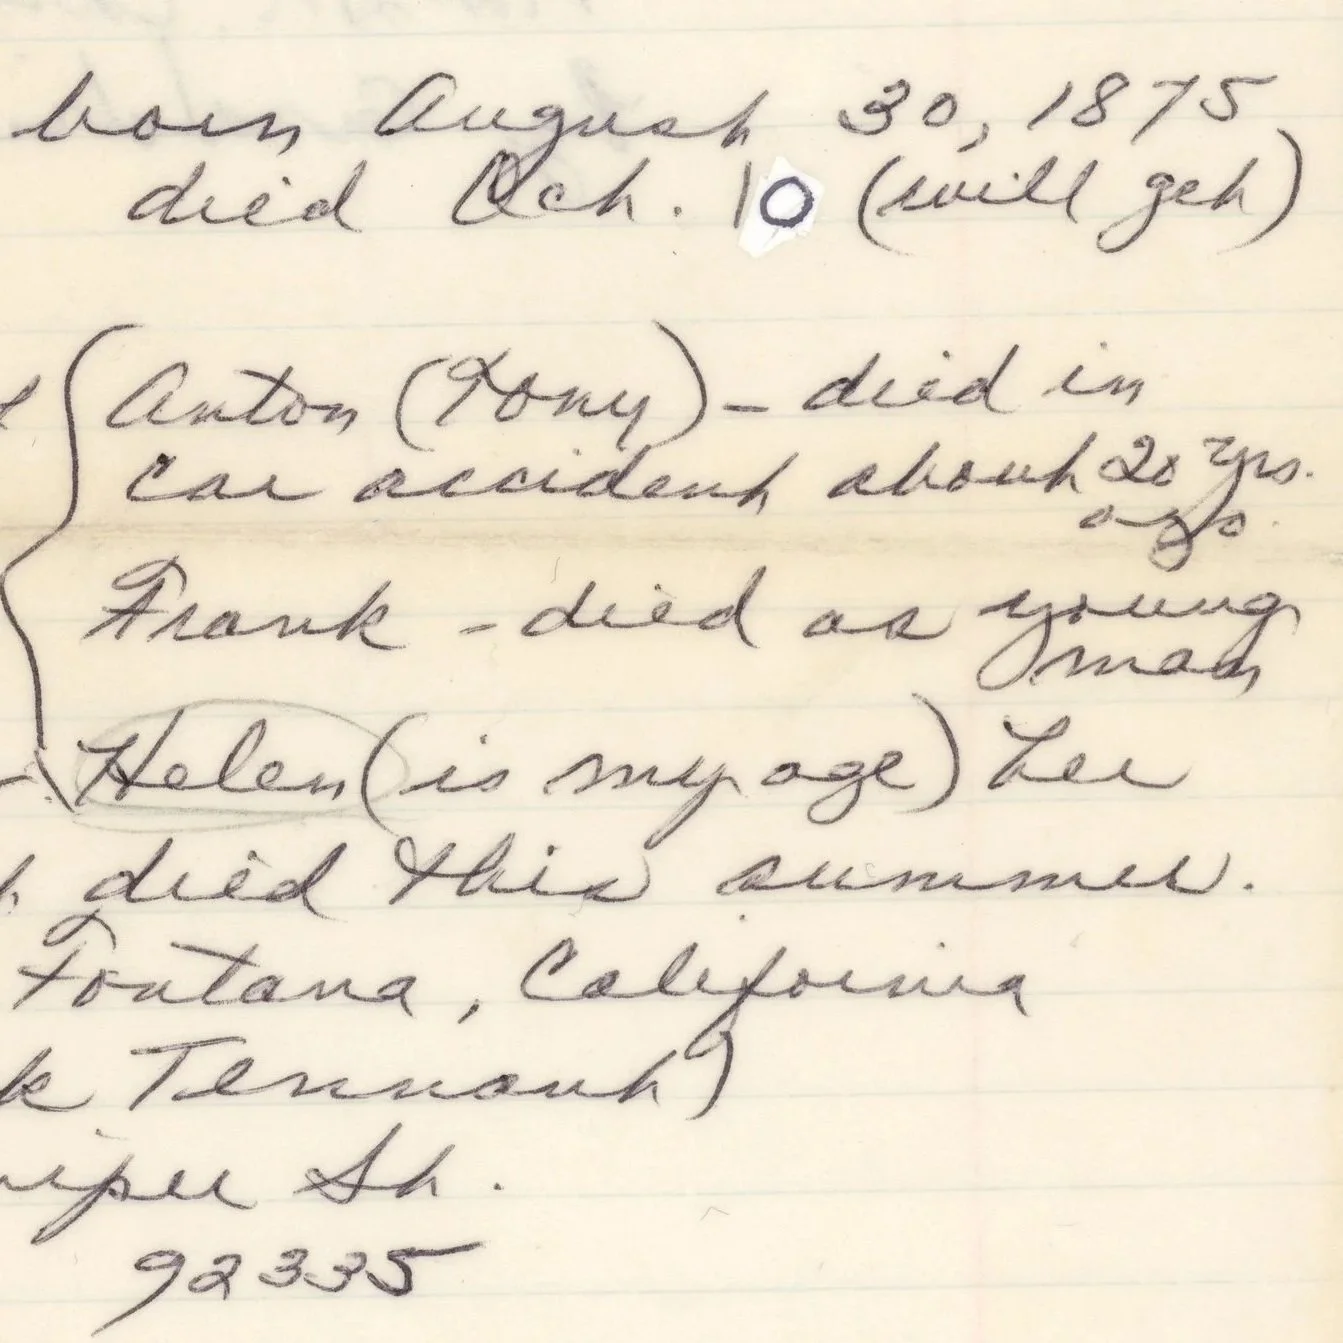 born August 30, 1875
died Oct. 10 (will get)
Anton (Tony) - died in
car accident about 20 yrs.
ago.
Frank - died as young
man
Helen (is my age) Her
died this summer.
Fontana, California
k Tennant)
niper St.
92335